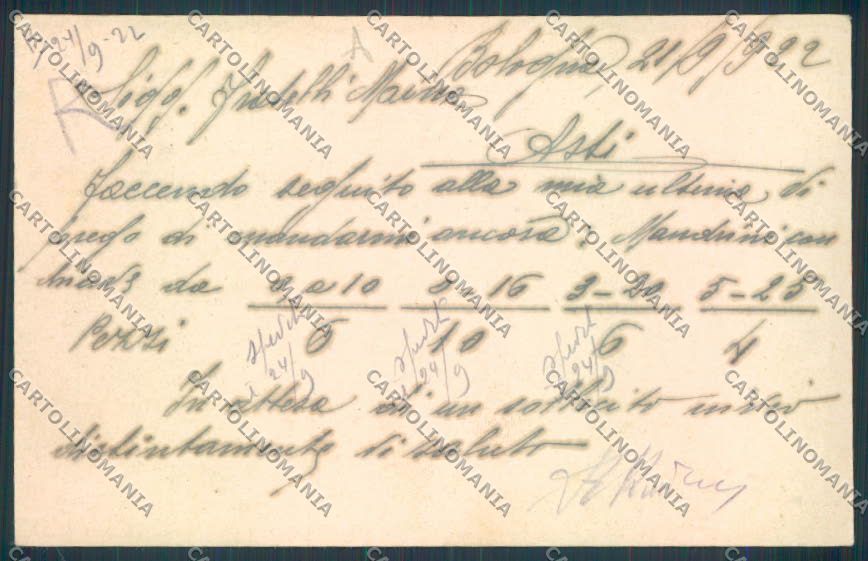 24/9-22
A
Bologna, 21/9/922
Sigg. Fratelli
Asti
Faccendo seguito alla mia ultima, di
prego di mandarmi ancora, Mandrini con
da 0 a 10 8-16 3-20 5-25
Pezzi 6 10 6 4
spedit spedit spedit
24/9 24/9 24/9
In attesa di un sollecito invio
distintamente di saluto
CARTOLINOMANIA